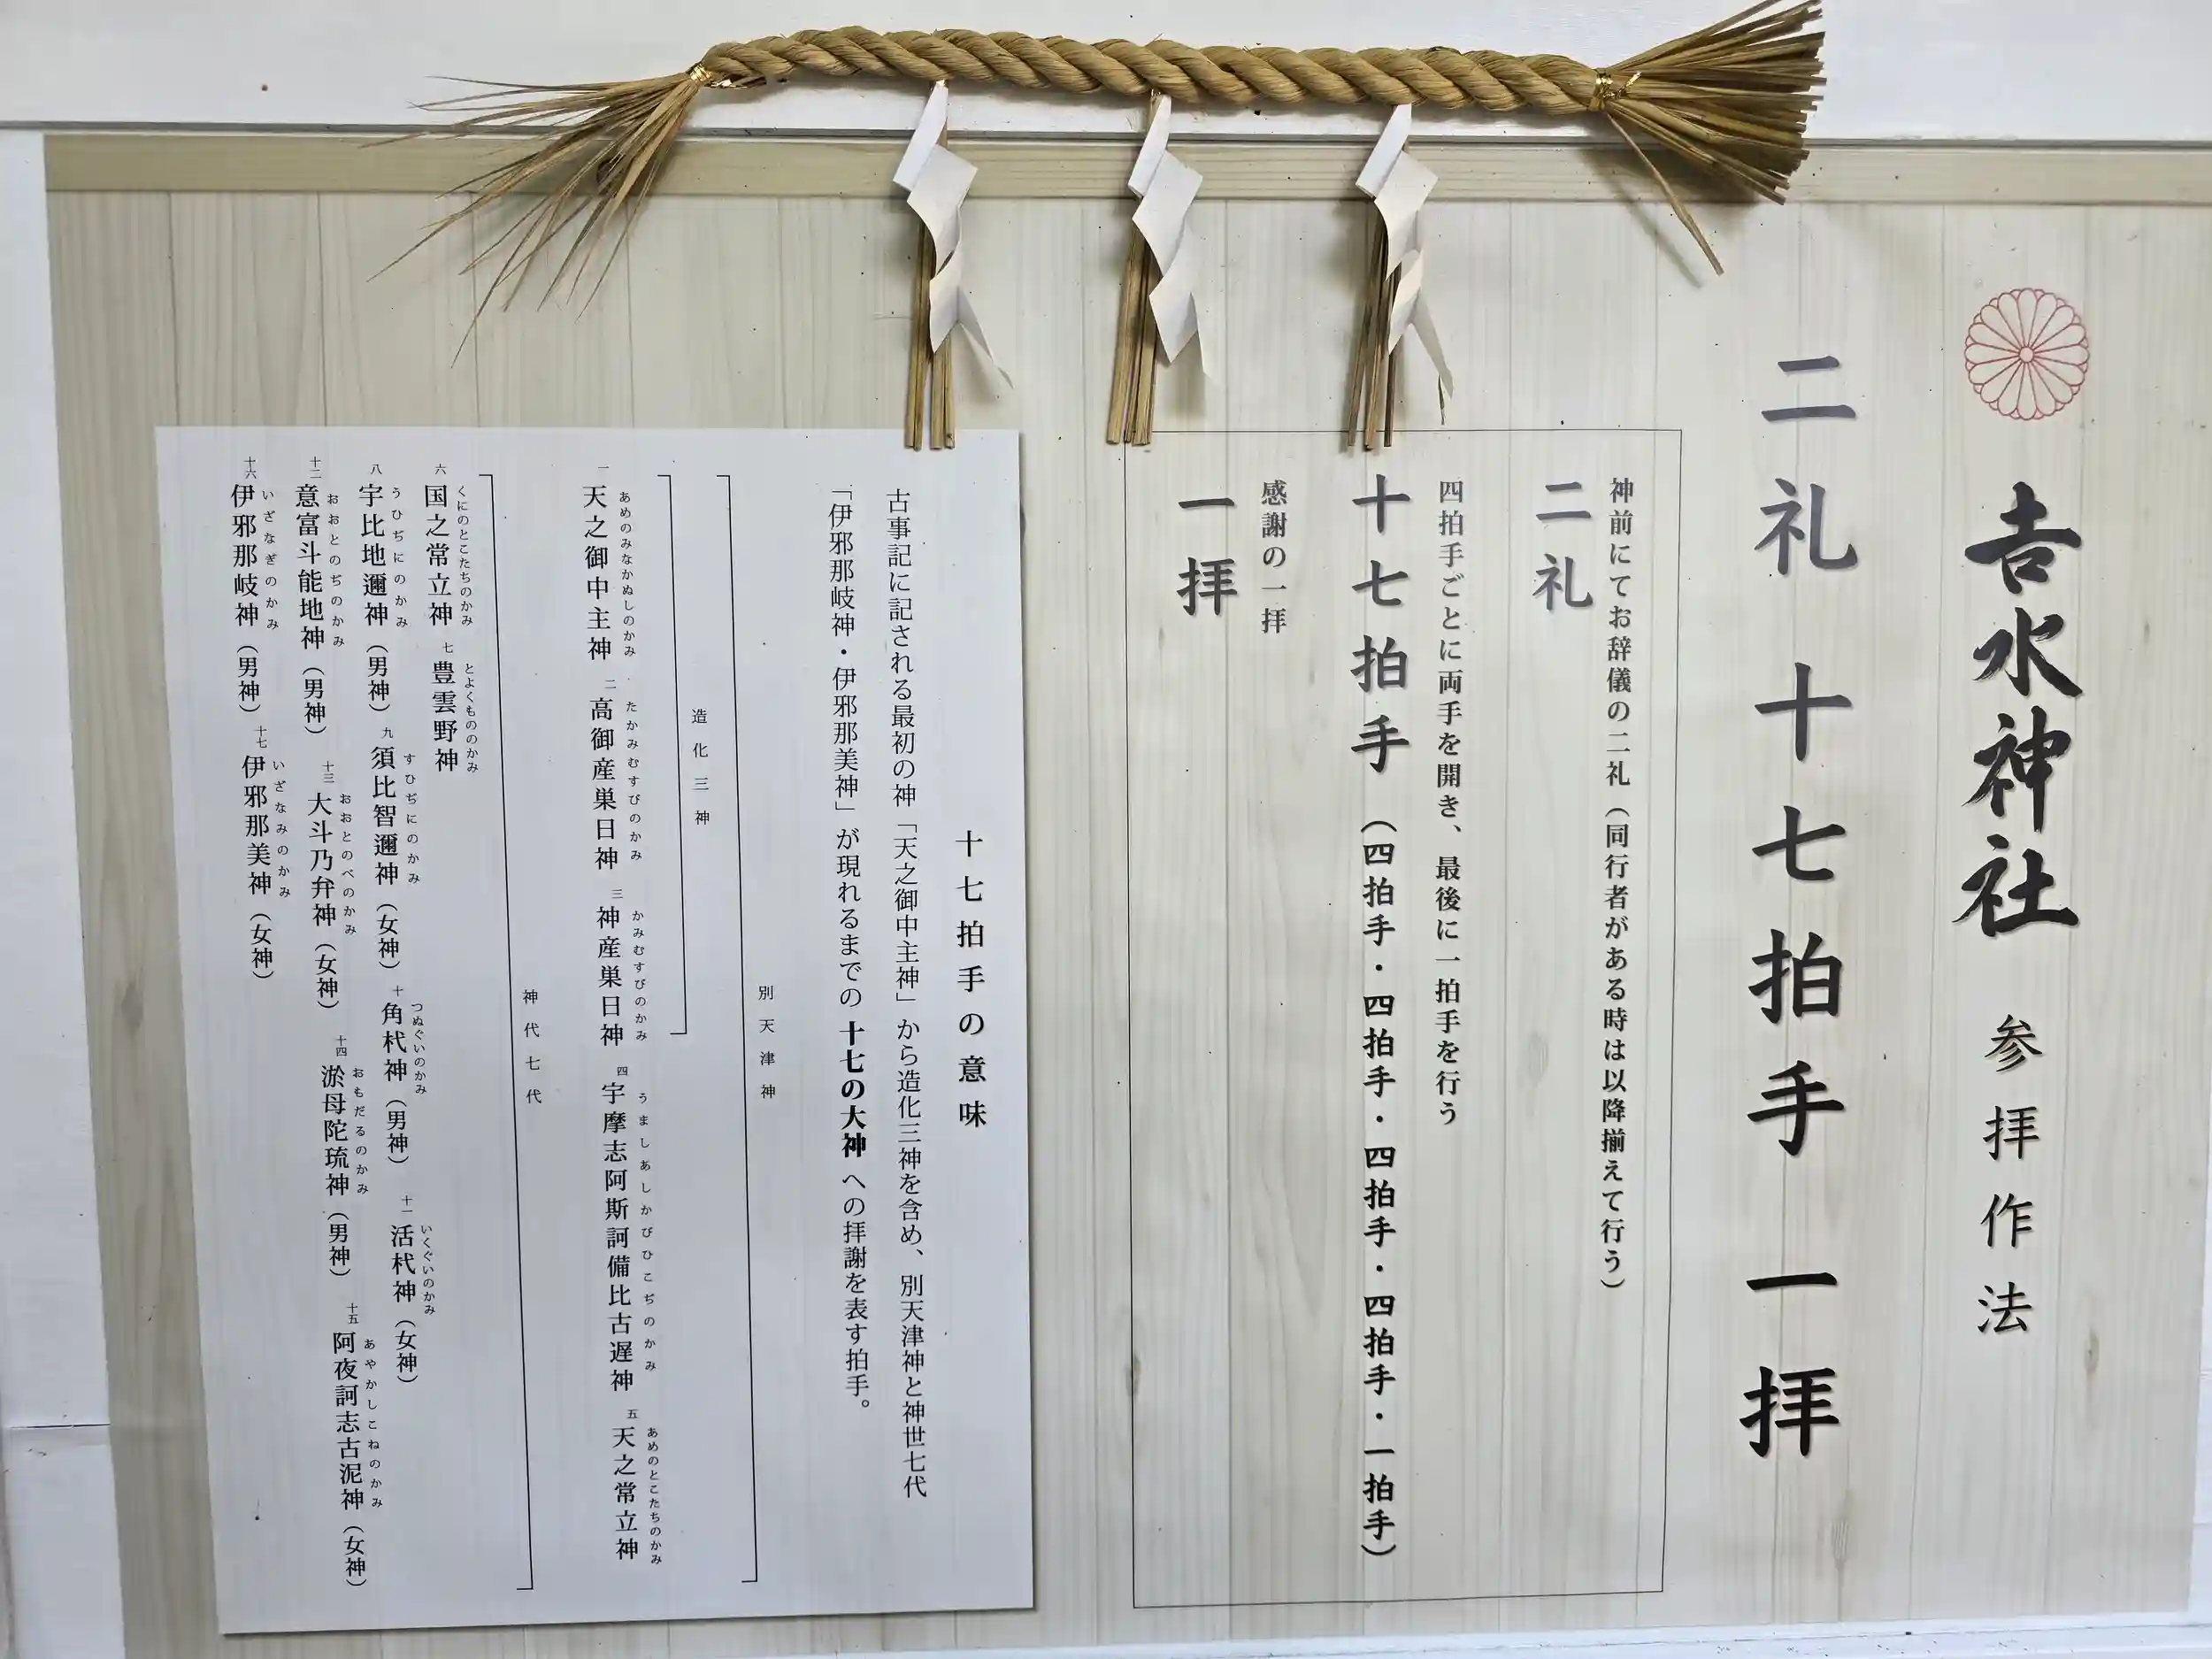 𠮷水神社 参拝作法
二礼 十七拍手 一拝
神前にてお辞儀の二礼（同行者がある時は以降揃えて行う）
二礼
四拍手ごとに両手を開き、最後に一拍手を行う
十七拍手（四拍手・四拍手・四拍手・四拍手・一拍手）
感謝の一拝
一拝
十七拍手の意味
古事記に記される最初の神「天之御中主神」から造化三神を含め、別天津神と神世七代
「伊邪那岐神・伊邪那美神」が現れるまでの十七の大神への拝謝を表す拍手。
別天津神
造化三神
あめのみなかぬしのかみ たかみむすびのかみ かみむすびのかみ うましあしかびひこぢのかみ あめのとこたちのかみ
一 天之御中主神 二 高御産巣日神 三 神産巣日神 四 宇摩志阿斯訶備比古遅神 五 天之常立神
神代七代
くにのとこたちのかみ とよくもののかみ
六 国之常立神 七 豊雲野神
うひぢにのかみ すひぢにのかみ つぬぐいのかみ いくぐいのかみ
八 宇比地邇神（男神） 九 須比智邇神（女神） 十 角杙神（男神） 十一 活杙神（女神）
おおとのぢのかみ おおとのべのかみ おもだるのかみ あやかしこねのかみ
十二 意富斗能地神（男神） 十三 大斗乃弁神（女神） 十四 淤母陀琉神（男神） 十五 阿夜訶志古泥神（女神）
いざなぎのかみ いざなみのかみ
十六 伊邪那岐神（男神） 十七 伊邪那美神（女神）